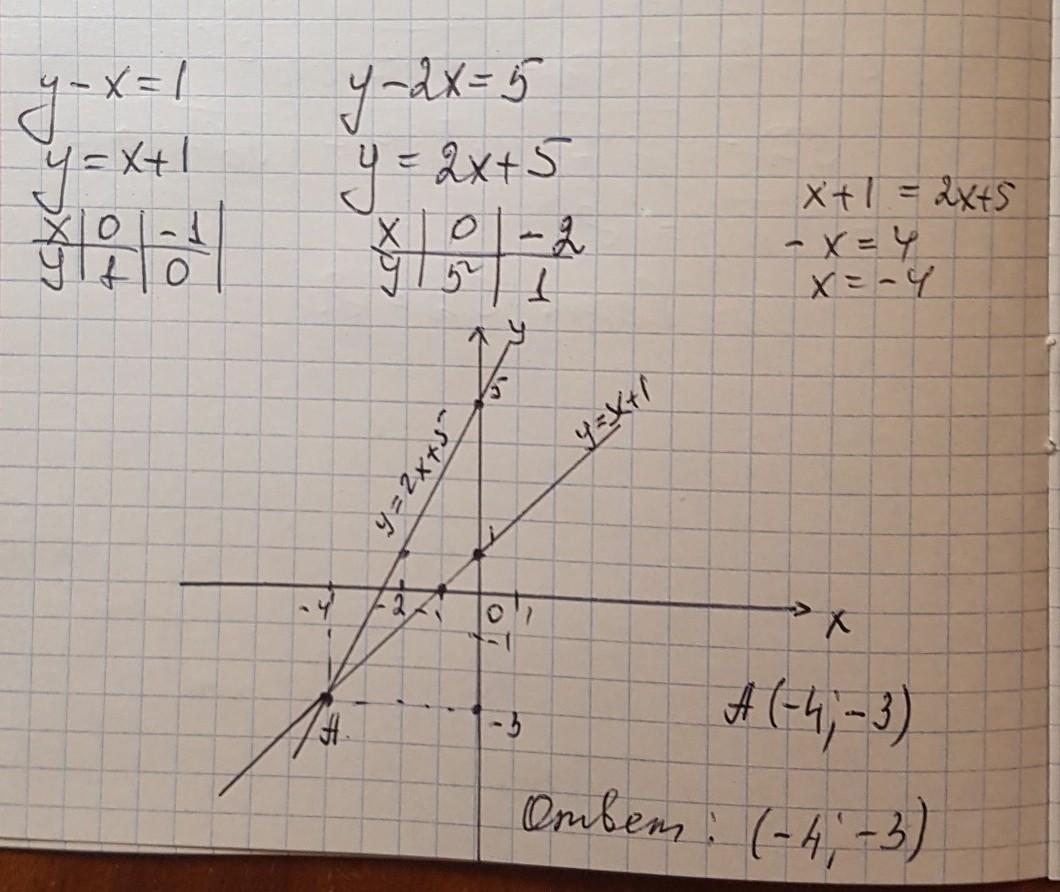 y - x = 1
y = x + 1
x | 0 | -1
y | 1 | 0
y - 2x = 5
y = 2x + 5
x | 0 | -2
y | 5 | 1
x + 1 = 2x + 5
- x = 4
x = -4
y
5
y = 2x + 5
y = x + 1
1
-4
-2
-1
0
1
x
-1
-3
A
A (-4; -3)
Ответ: (-4; -3)